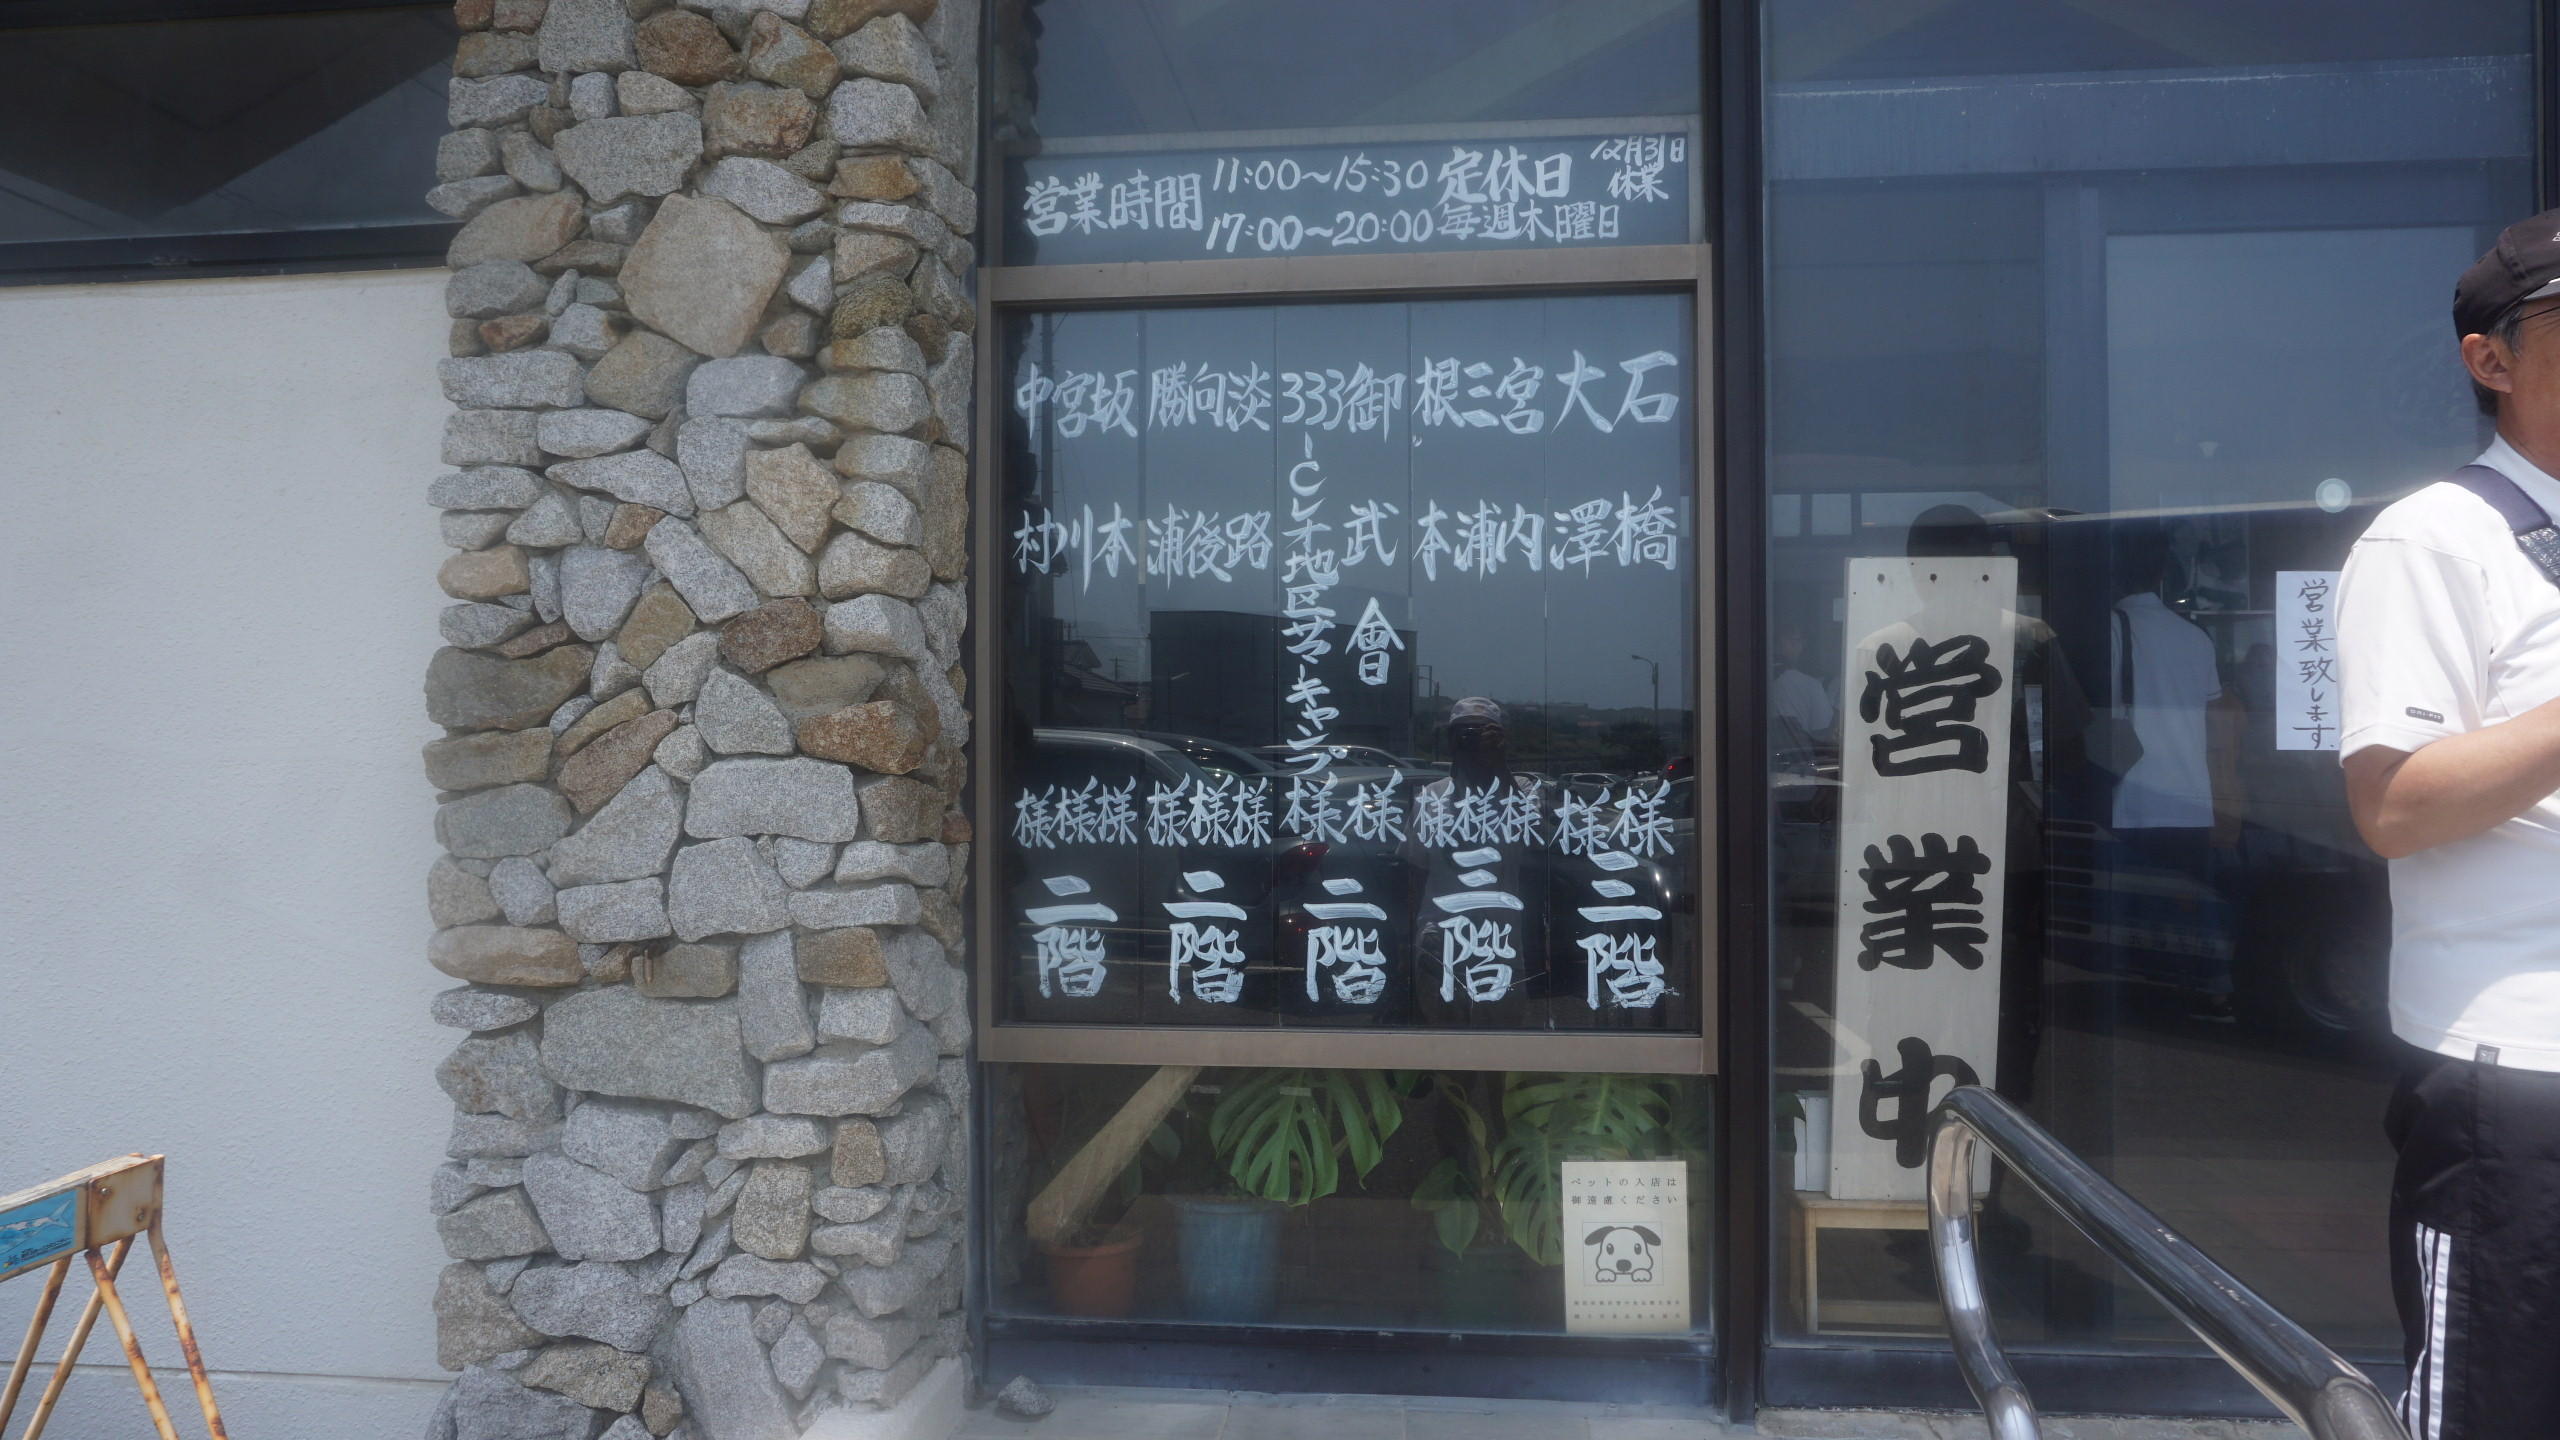 営業時間 11:00～15:30 定休日 12月31日休業
17:00～20:00 毎週木曜日
石橋様
大澤様
三階
宮内様
三浦様
根本様
三階
御武會様
333-Cレオ地区サマーキャンプ様
二階
淡路様
向後様
勝浦様
二階
坂本様
宮川様
中村様
二階
営業中
営業致します.
ペットの入店は
御遠慮ください